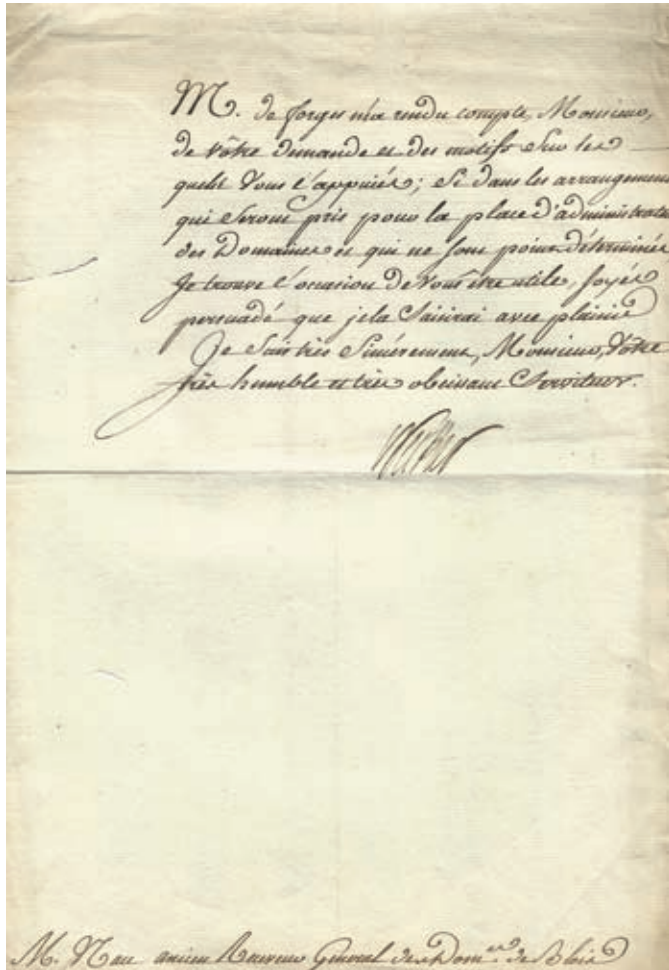 M. de forges m'a rendu compte, Monsieur,
de vôtre demande et des motifs Sur les
quels Vous l'appuiés; Si dans les arrangemens
qui Seront pris pour la place d'administrateur
des Domaines et qui ne sont point déterminés
Je trouve l'occasion de Vous être utile, soyés
persuadé que je la Saisirai avec plaisir
Je Suis très Sincérement, Monsieur, Vôtre
très humble et très obéissant Serviteur.
Necker
M. Nau ancien Receveur Général des Dom.es de Blois